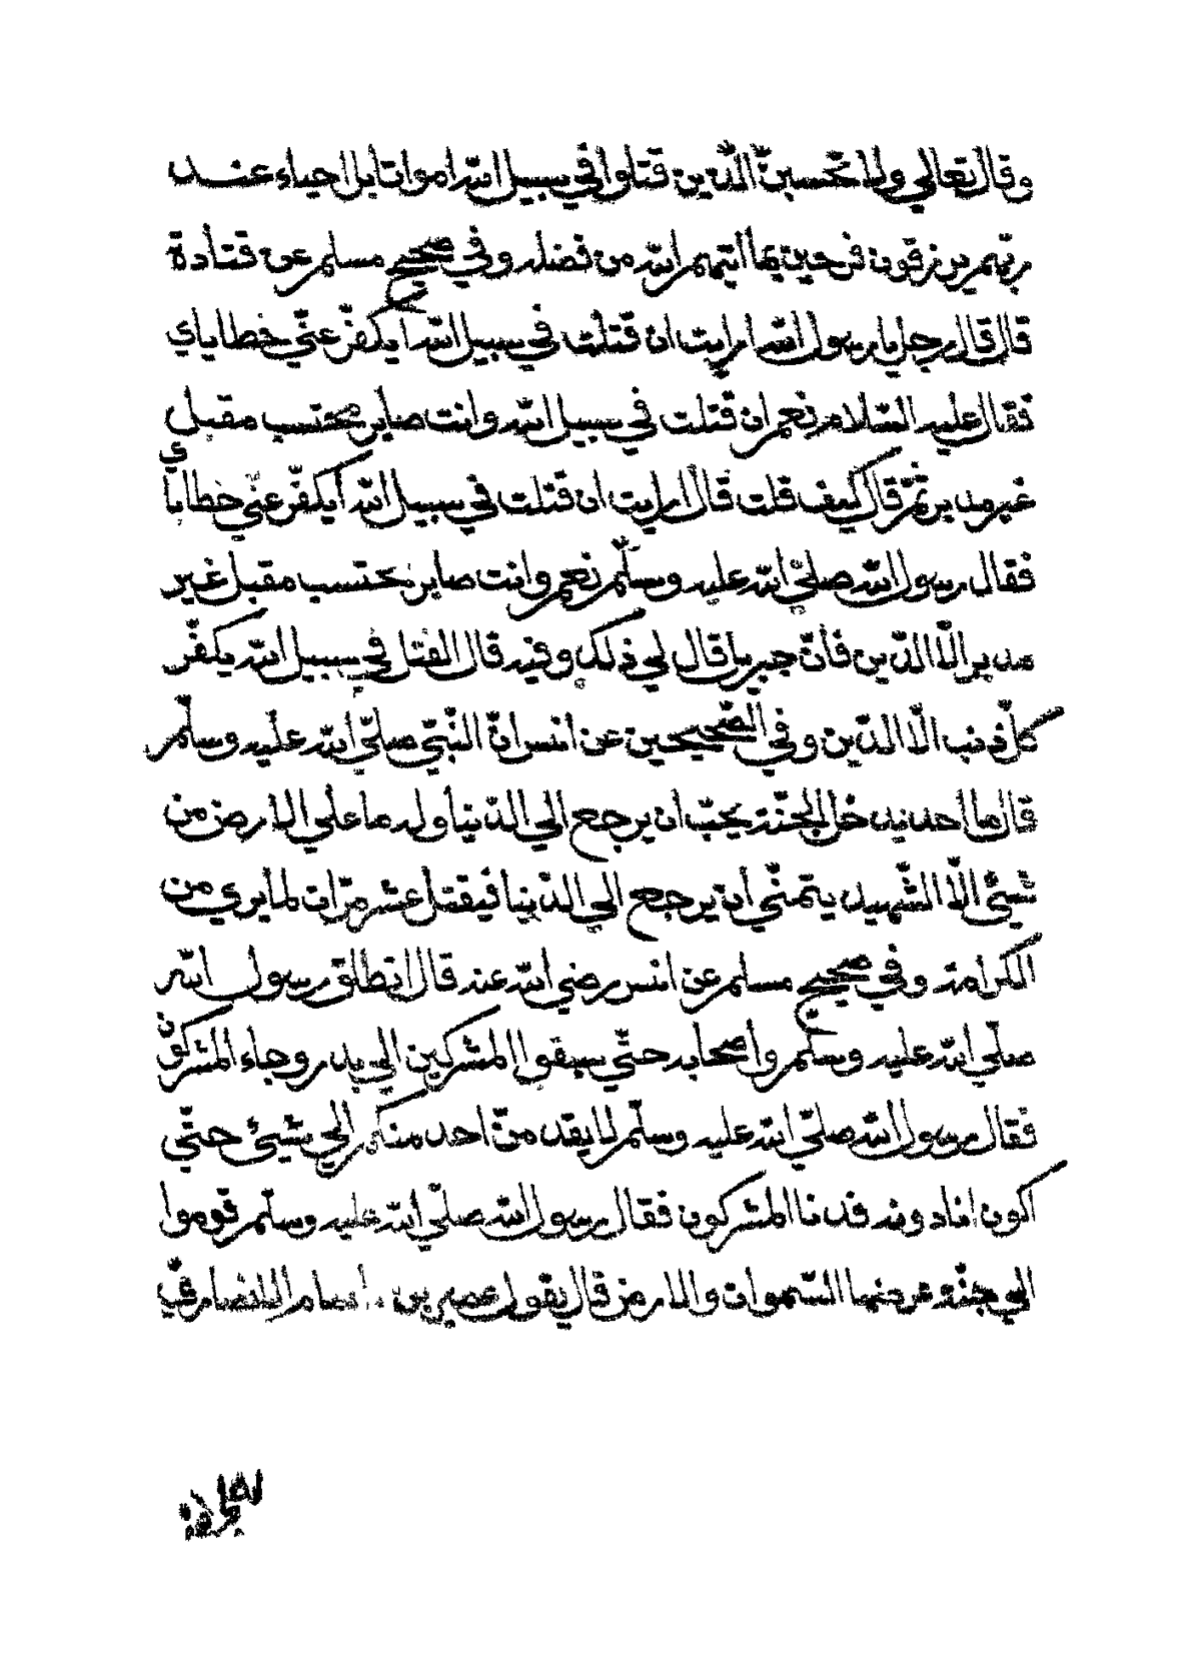 وقال تعالي ولا تحسبنّ الّذين قتلوا في سبيل الله أمواتا بل احياء عند
ربّهم يرزقون فرحين بما أتيهم الله من فضله وفي صحيح مسلم عن قتادة
قال قال رجل يا رسول الله ارايت ان قتلت في سبيل الله ايكفّر عنّي خطاياي
فقال عليه السّلام نعم ان قتلت في سبيل الله وانت صابر محتسب مقبل
غير مدبر ثمّ قال كيف قلت قال ارايت ان قتلت في سبيل الله أيكفّر عنّي خطاياي
فقال رسول الله صلّي الله عليه وسلّم نعم وانت صابر محتسب مقبل غير
مدبر الّا الدّين فأنّ جبريل قال لي ذلك وفيه قال القتل في سبيل الله يكفّر
كلّ ذنب الّا الدّين وفي الصّحيحين عن انس انّ النّبيّ صلّي الله عليه وسلّم
قال ما احد يدخل الجنّة يحبّ ان يرجع الي الدّنيا وله ما علي الارض من
شيئ الّا الشّهيد يتمنّي أن يرجع الي الدّنيا فيقتل عشر مرّات لما يري من
الكرامة وفي صحيح مسلم عن انس رضي الله عنه قال انطلق رسول الله
صلّي الله عليه وسلّم وأصحابه حتّي سبقوا المشركين الي بدر وجاء المشركون
فقال رسول الله صلّي الله عليه وسلّم لا يقدمنّ احد منكم الي شيئ حتّي
اكون انا دونه فدنا المشركون فقال رسول الله صلّي الله عليه وسلّم قوموا
الي جنّة عرضها السّموات والارض قال يقول عمير بن الانصاريّ